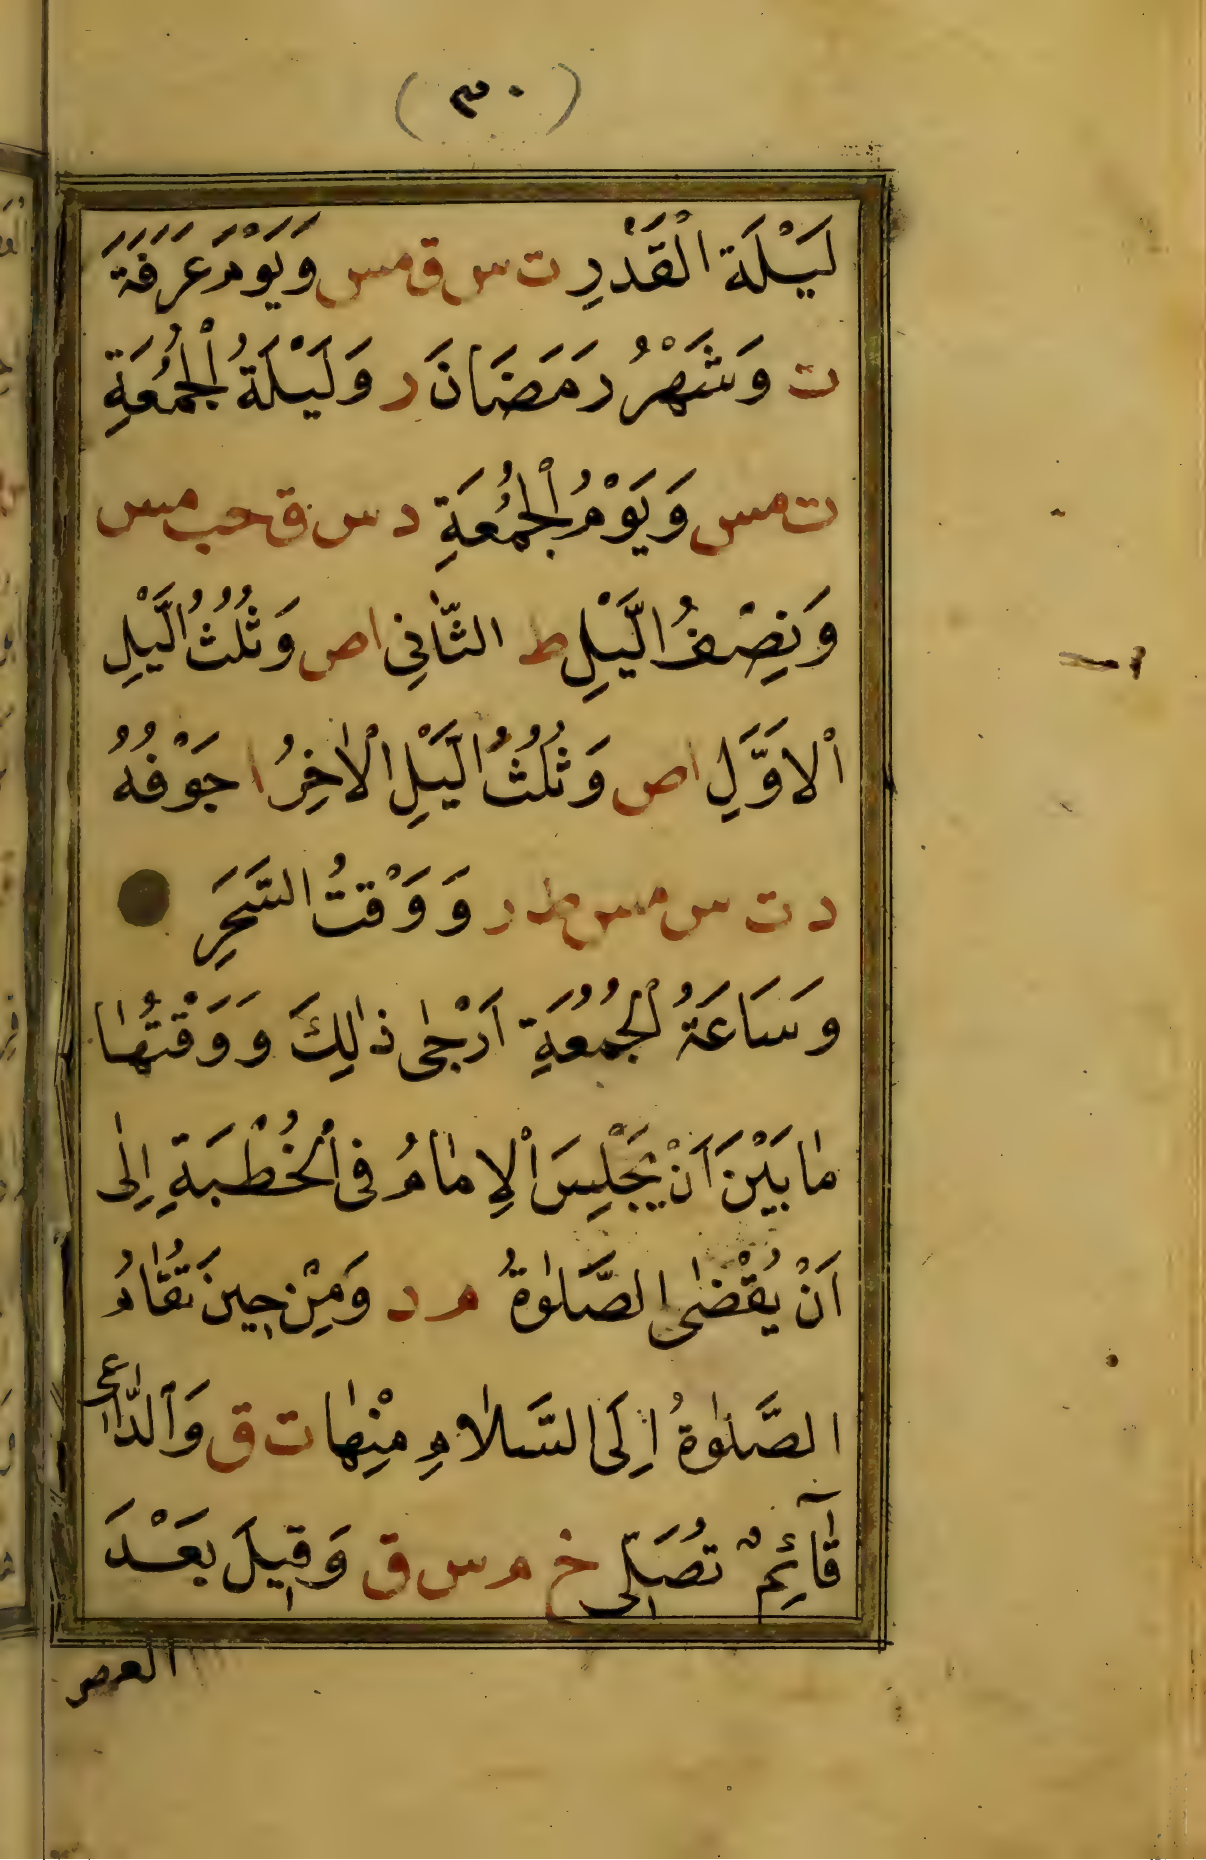 (٣٠)
لَيْلَة الْقَدْرِ ت س ق مس وَيَوْمَ عَرَفَةَ
ت وَشَهْرُ رَمَضَانَ ر وَلَيْلَةُ الْجُمُعَةِ
ت مس وَيَوْمُ الْجُمُعَةِ د س ق حب مس
وَنِصْفُ الَّيْلِ ط الثَّانِي ا ص وَثُلُثُ الَّيْلِ
الْاَوَّلِ ا ص وَثُلُثُ الَّيْلِ الْاٰخِرُ ا جَوْفُهُ
د ت س مس ط ر وَوَقْتُ السَّحَرِ
وَسَاعَةُ الْجُمُعَةِ اَرْجٰى ذٰلِكَ وَوَقْتُهٰا
مٰابَيْنَ اَنْ يَجْلِسَ الْاِمٰامُ فِى الْخُطْبَةِ اِلٰى
اَنْ يُقْضَى الصَّلٰوةُ م د وَمِنْ حِينَ تُقٰامُ
الصَّلٰوةُ اِلَى السَّلَامِ مِنْهٰا ت ق وَالدّٰاعِى
قٰآئِمٌ تُصَلِّى خ م س ق وَقِيلَ بَعْدَ
العصر